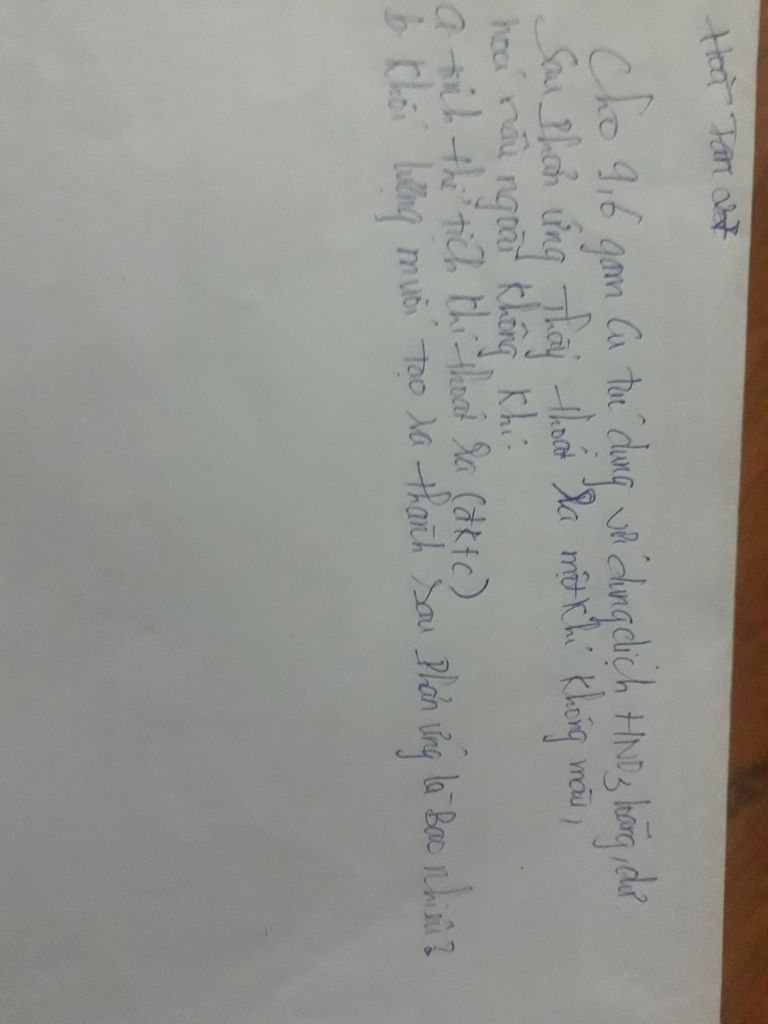 Hoà Tan
Cho 9,6 gam Cu tác dụng với dung dịch HNO3 loãng, dư.
Sau phản ứng thấy thoát ra một khí không màu,
hoá nâu ngoài không khí.
a tính thể tích khí thoát ra (đktc)
b. Khối lượng muối tạo ra thành sau phản ứng là Bao nhiêu?